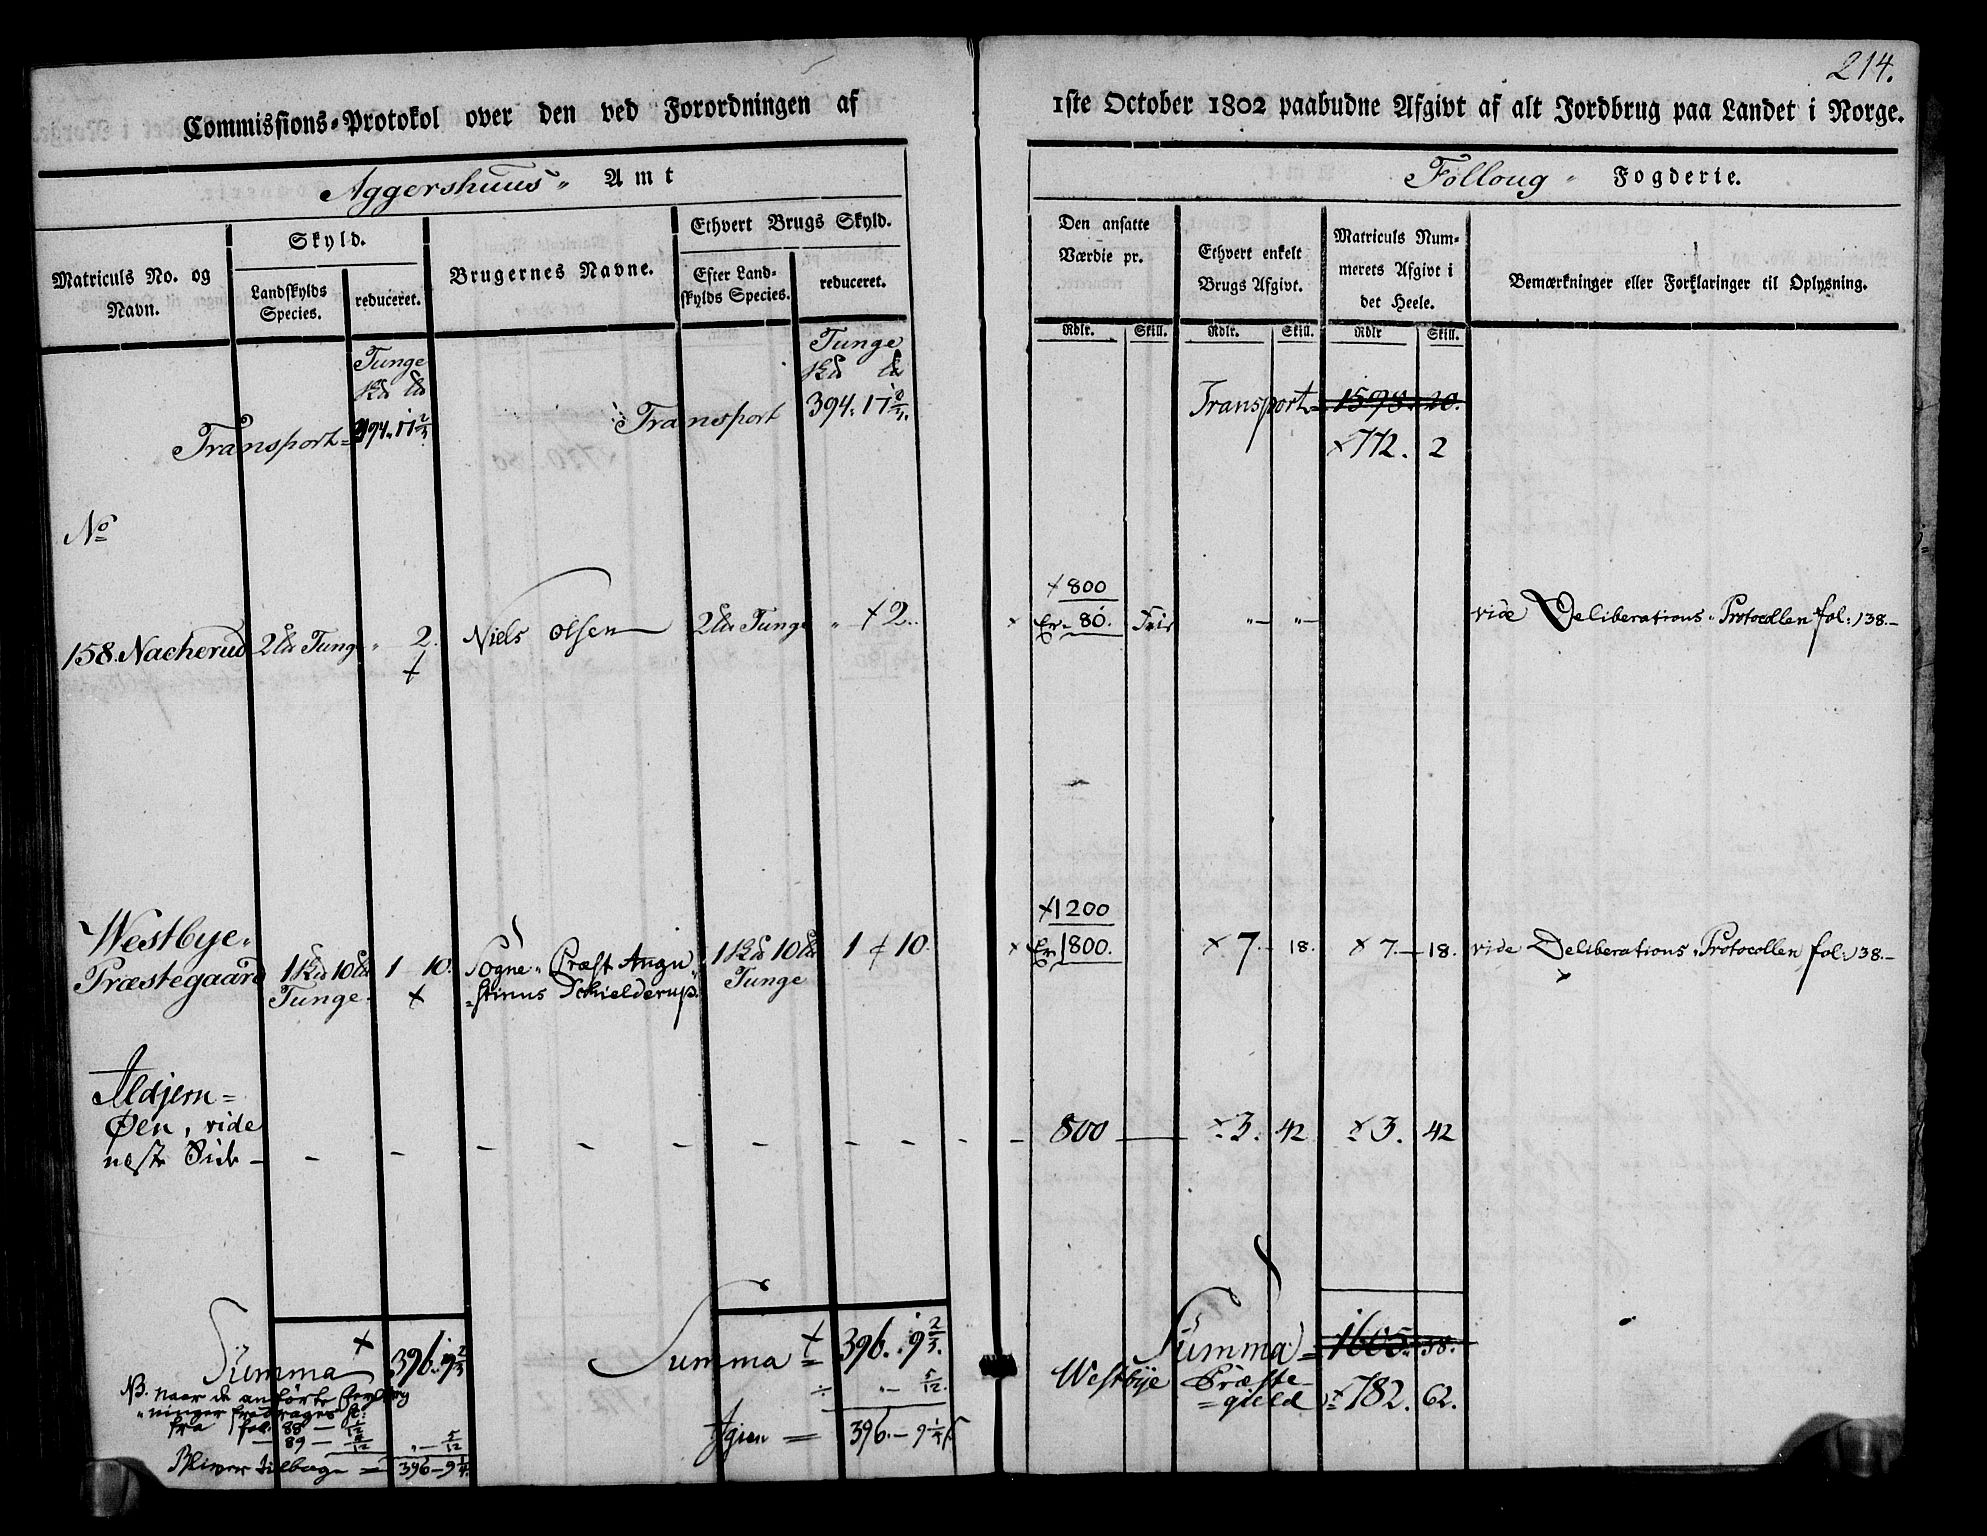 214.
Commissions-Protokol over den ved Forordningen af 1ste October 1802 paabudne Afgivt af alt Jordbrug paa Landet i Norge.
Aggershuus Amt
Folloug Fogderie.
Matriculs No. og Navn.
Skyld.
Landskylds Species.
reduceret.
Brugernes Navne.
Ethvert Brugs Skyld.
Efter Landskylds Species.
reduceret.
Den ansatte Værdie pr.
Ethvert enkelt Brugs Afgivt.
Matriculs Nummerets Afgivt i det Heele.
Bemærkninger eller Forklaringer til Oplysning.
Rdlr. Skill. Rdlr. Skill. Rdlr Skill.
Tunge
Tunge
Transport = 394. 17 2/3
Transport 394. 17 2/3.
Transport = 1598. 20.
× 772. 2
No
× 800
158. Nacherud 2 Tunge " 2. Niels Olsen 2 Tunge " × 2.. × Er 80. Frie "— "— vide Deliberations-Protocollen fol: 138.—
×1200
Westbye-
Præstegaard 1 10 1 10. Sogne-Præst Augu- 1 10 1 10. × Er 1800. × 7. 18. × 7.— 18. vide Deliberations-Protocollen fol: 138.—
Tunge. × =stinus Schielderup. Tunge
Aldjern=
Øen, vide
næste Side — — — — — — — — — — 800 — × 3. 42 × 3. 42
Summa × 396. 9 2/3
Summa = 396. 9 2/3.
Summa = 1605. 38.
NB. naar de anførte
÷ "— 5/12.
Westbye Præste-
=gield = × 782. 62.
fra fol: 88 — 1/12
— 89 — 4/12 "— 5/12
Igien = 396.— 9 1/4
Bliver tilbage = 396—9 1/4.